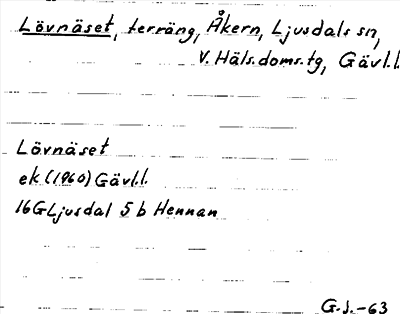 Lövnäset, terräng, Åkern, Ljusdals sn,
V. Häls.doms.tg, Gävl.l.
Lövnäset
ek (1960) Gävl.l.
16G Ljusdal 5 b Hennan
G.J.-63